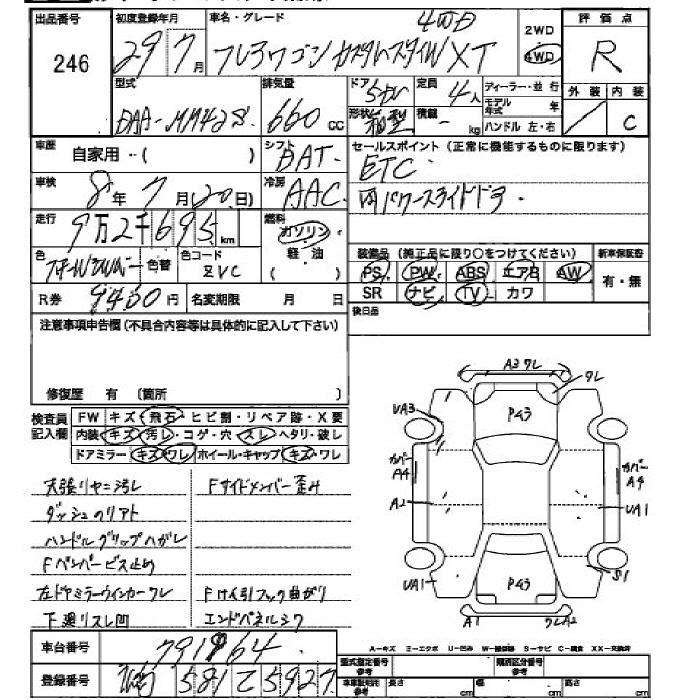 出品番号
246
初度登録年月
29 7月
車名・グレード
4WD
フレアワゴン カスタムスタイル XT
2WD
4WD
評価点
R
外装 内装
／ C
型式
DAA-MM42S
排気量
660 cc
ドア 5ドア
形状 箱型
定員 4人
積載 - kg
ディーラー・並行
モデル年式 年
ハンドル 左・右
車歴
自家用・( )
シフト
DAT
車検
8年7月(20日)
冷房
AAC
セールスポイント (正常に機能するものに限ります)
ETC
両パワースライドドア
走行
9万2千695km
燃料
ガソリン
軽油
色
色替
色コード
ZVC
装備品 (純正品に限り○をつけてください)
新車保証書
PS PW ABS エアB AW
有・無
SR ナビ TV カワ
R券 9430円
名変期限 月 日
後日品
注意事項申告欄(不具合内容等は具体的に記入して下さい)
修復歴 有 〔箇所 〕
検査員
記入欄
FW キズ・飛石・ヒビ割・リペア跡・X要
内装・キズ・汚レ・コゲ・穴・スレ・ヘタリ・破レ
ドアミラー・キズ・ワレ ホイール・キャップ・キズ・ワレ
天張リヤニ汚レ
Fサイドメンバー歪み
ダッシュのリアト
ハンドルグリップハガレ
Fバンパービス止め
左ドヤミラーウインカーワレ
Fけん引フック曲がり
下廻リスレ凹
エンドパネルシワ
A3ワレ
ワレ
UA3
P43
カバーA4
カバーA4
A2
UA1
UA1
P43
S1
A1
ワレA2
A-キズ エ-エクボ U-凹み W-補修跡 S-サビ C-腐食 XX-交換済
車台番号
791964
登録番号
581 て 5927
型式指定番号
類別区分番号
参考
長さ cm
幅 cm
高さ cm